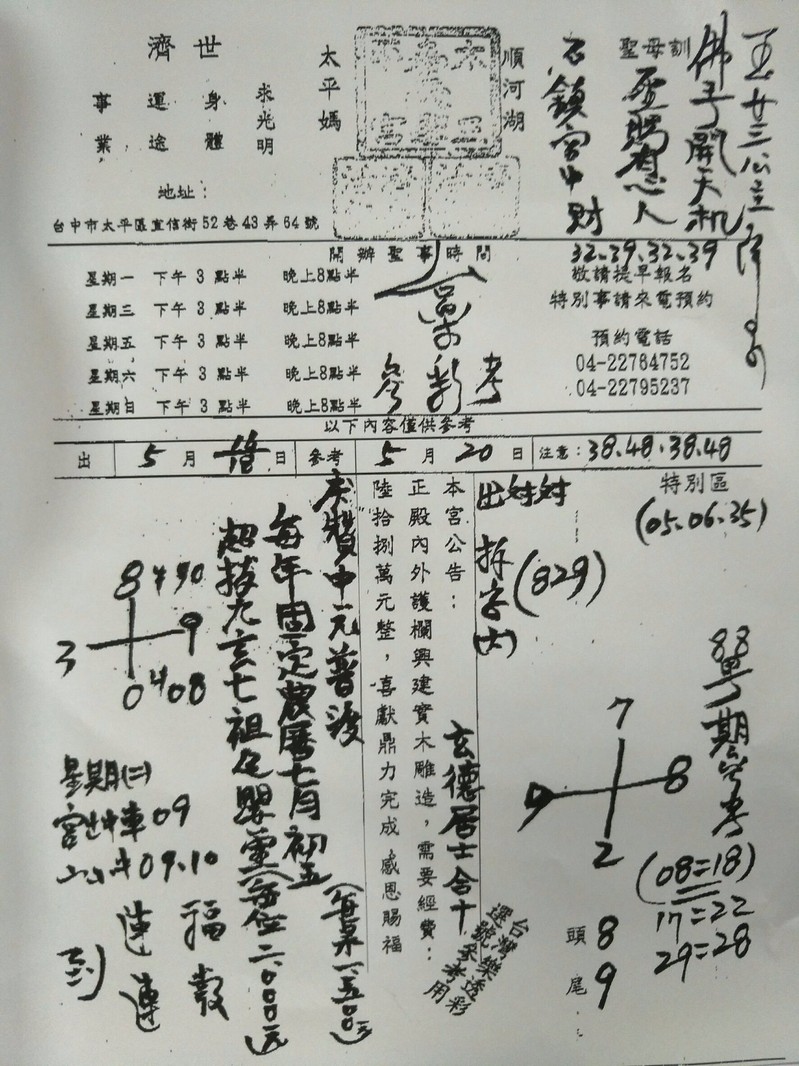 順河湖
太平媽
求光明
濟世
身體
運途
事業
地址：
台中市太平區宜信街52巷43弄64號
聖母訓
佛手開天机
石鎮宮中財
32.39.32.39
開辦聖事時間
星期一 下午 3 點半 晚上8點半
星期三 下午 3 點半 晚上8點半
星期五 下午 3 點半 晚上8點半
星期六 下午 3 點半 晚上8點半
星期日 下午 3 點半 晚上8點半
敬請提早報名
特別事請來電預約
預約電話
04-22764752
04-22795237
參彩考
以下內容僅供參考
出 5 月 日 參考 5 月 20 日 注意：38.48.38.48
特別區
(05.06.35)
出対対
拆字(六)
(829)
本宮公告：
正殿內外護欄興建實木雕造，需要經費：
陸拾捌萬元整，喜獻鼎力完成 感恩賜福
玄德居士合十
本贊中元普渡
每年固定農曆七月初五(每桌一、五00元)
超拔九玄七祖 嬰靈(每位二、000元)
8 490
3 9
0 408
星期(二)
宮 車09
09.10
福
連
到
連
7
9 8
2
頭 8
尾 9
88
期參考
(08=18)
17=22
29=28
台灣樂透彩
選號參考用